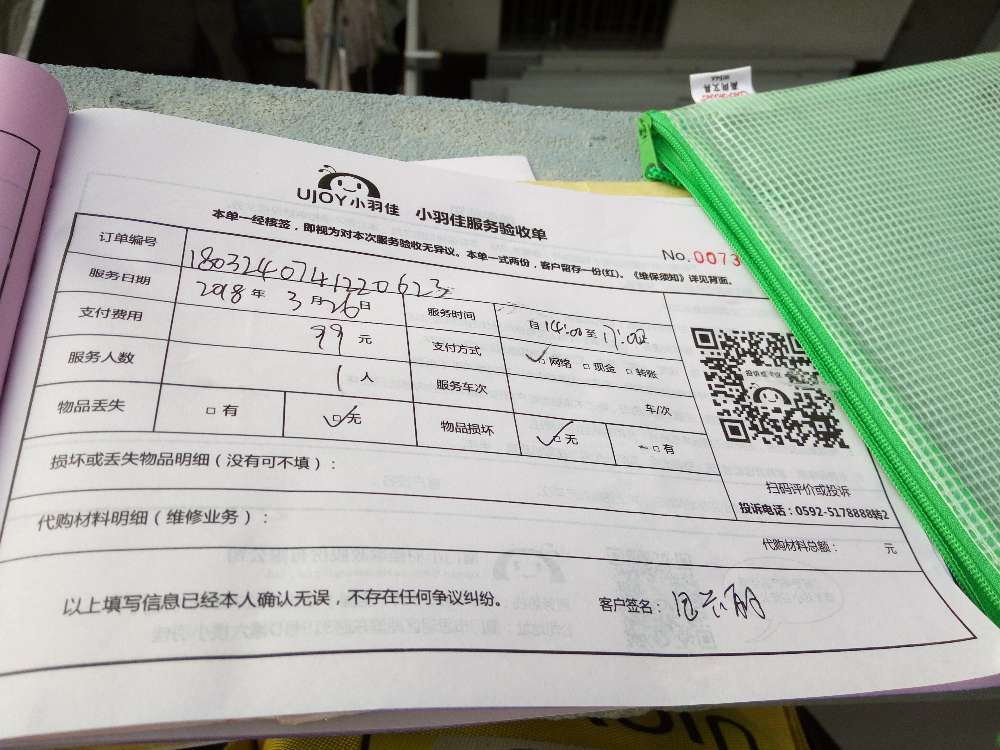 UJOY小羽佳 小羽佳服务验收单
本单一经核签，即视为对本次服务验收无异议。本单一式两份，客户留存一份(红)。《维保须知》详见背面。
No.0073
订单编号 1803240741220623
服务日期 2018年3月26日 服务时间 自14:00至17:00
支付费用 99元 支付方式 ☑网络 □现金 □转账
服务人数 1人 服务车次 车/次
物品丢失 □有 ☑无 物品损坏 ☑无 □有
损坏或丢失物品明细（没有可不填）：
扫码评价或投诉
投诉电话：0592-5178888转2
代购材料明细（维修业务）：
代购材料总额： 元
以上填写信息已经本人确认无误，不存在任何争议纠纷。
客户签名：